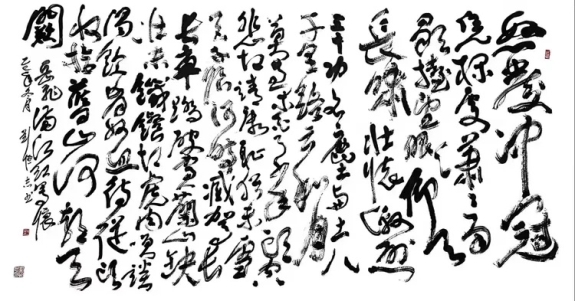 怒髮冲冠
凭栏處萧萧雨
歇抬望眼仰天
長啸壮懷激烈
三十功名尘与土八
千里路云和月
莫等闲白了少年头空
悲切靖康耻犹未雪
臣子恨何時滅驾長
車踏破贺蘭山缺
壮志饑餐胡虏肉笑谈
渴飲匈奴血待從頭
收拾舊山河朝天
闕
岳飛满江红写懷